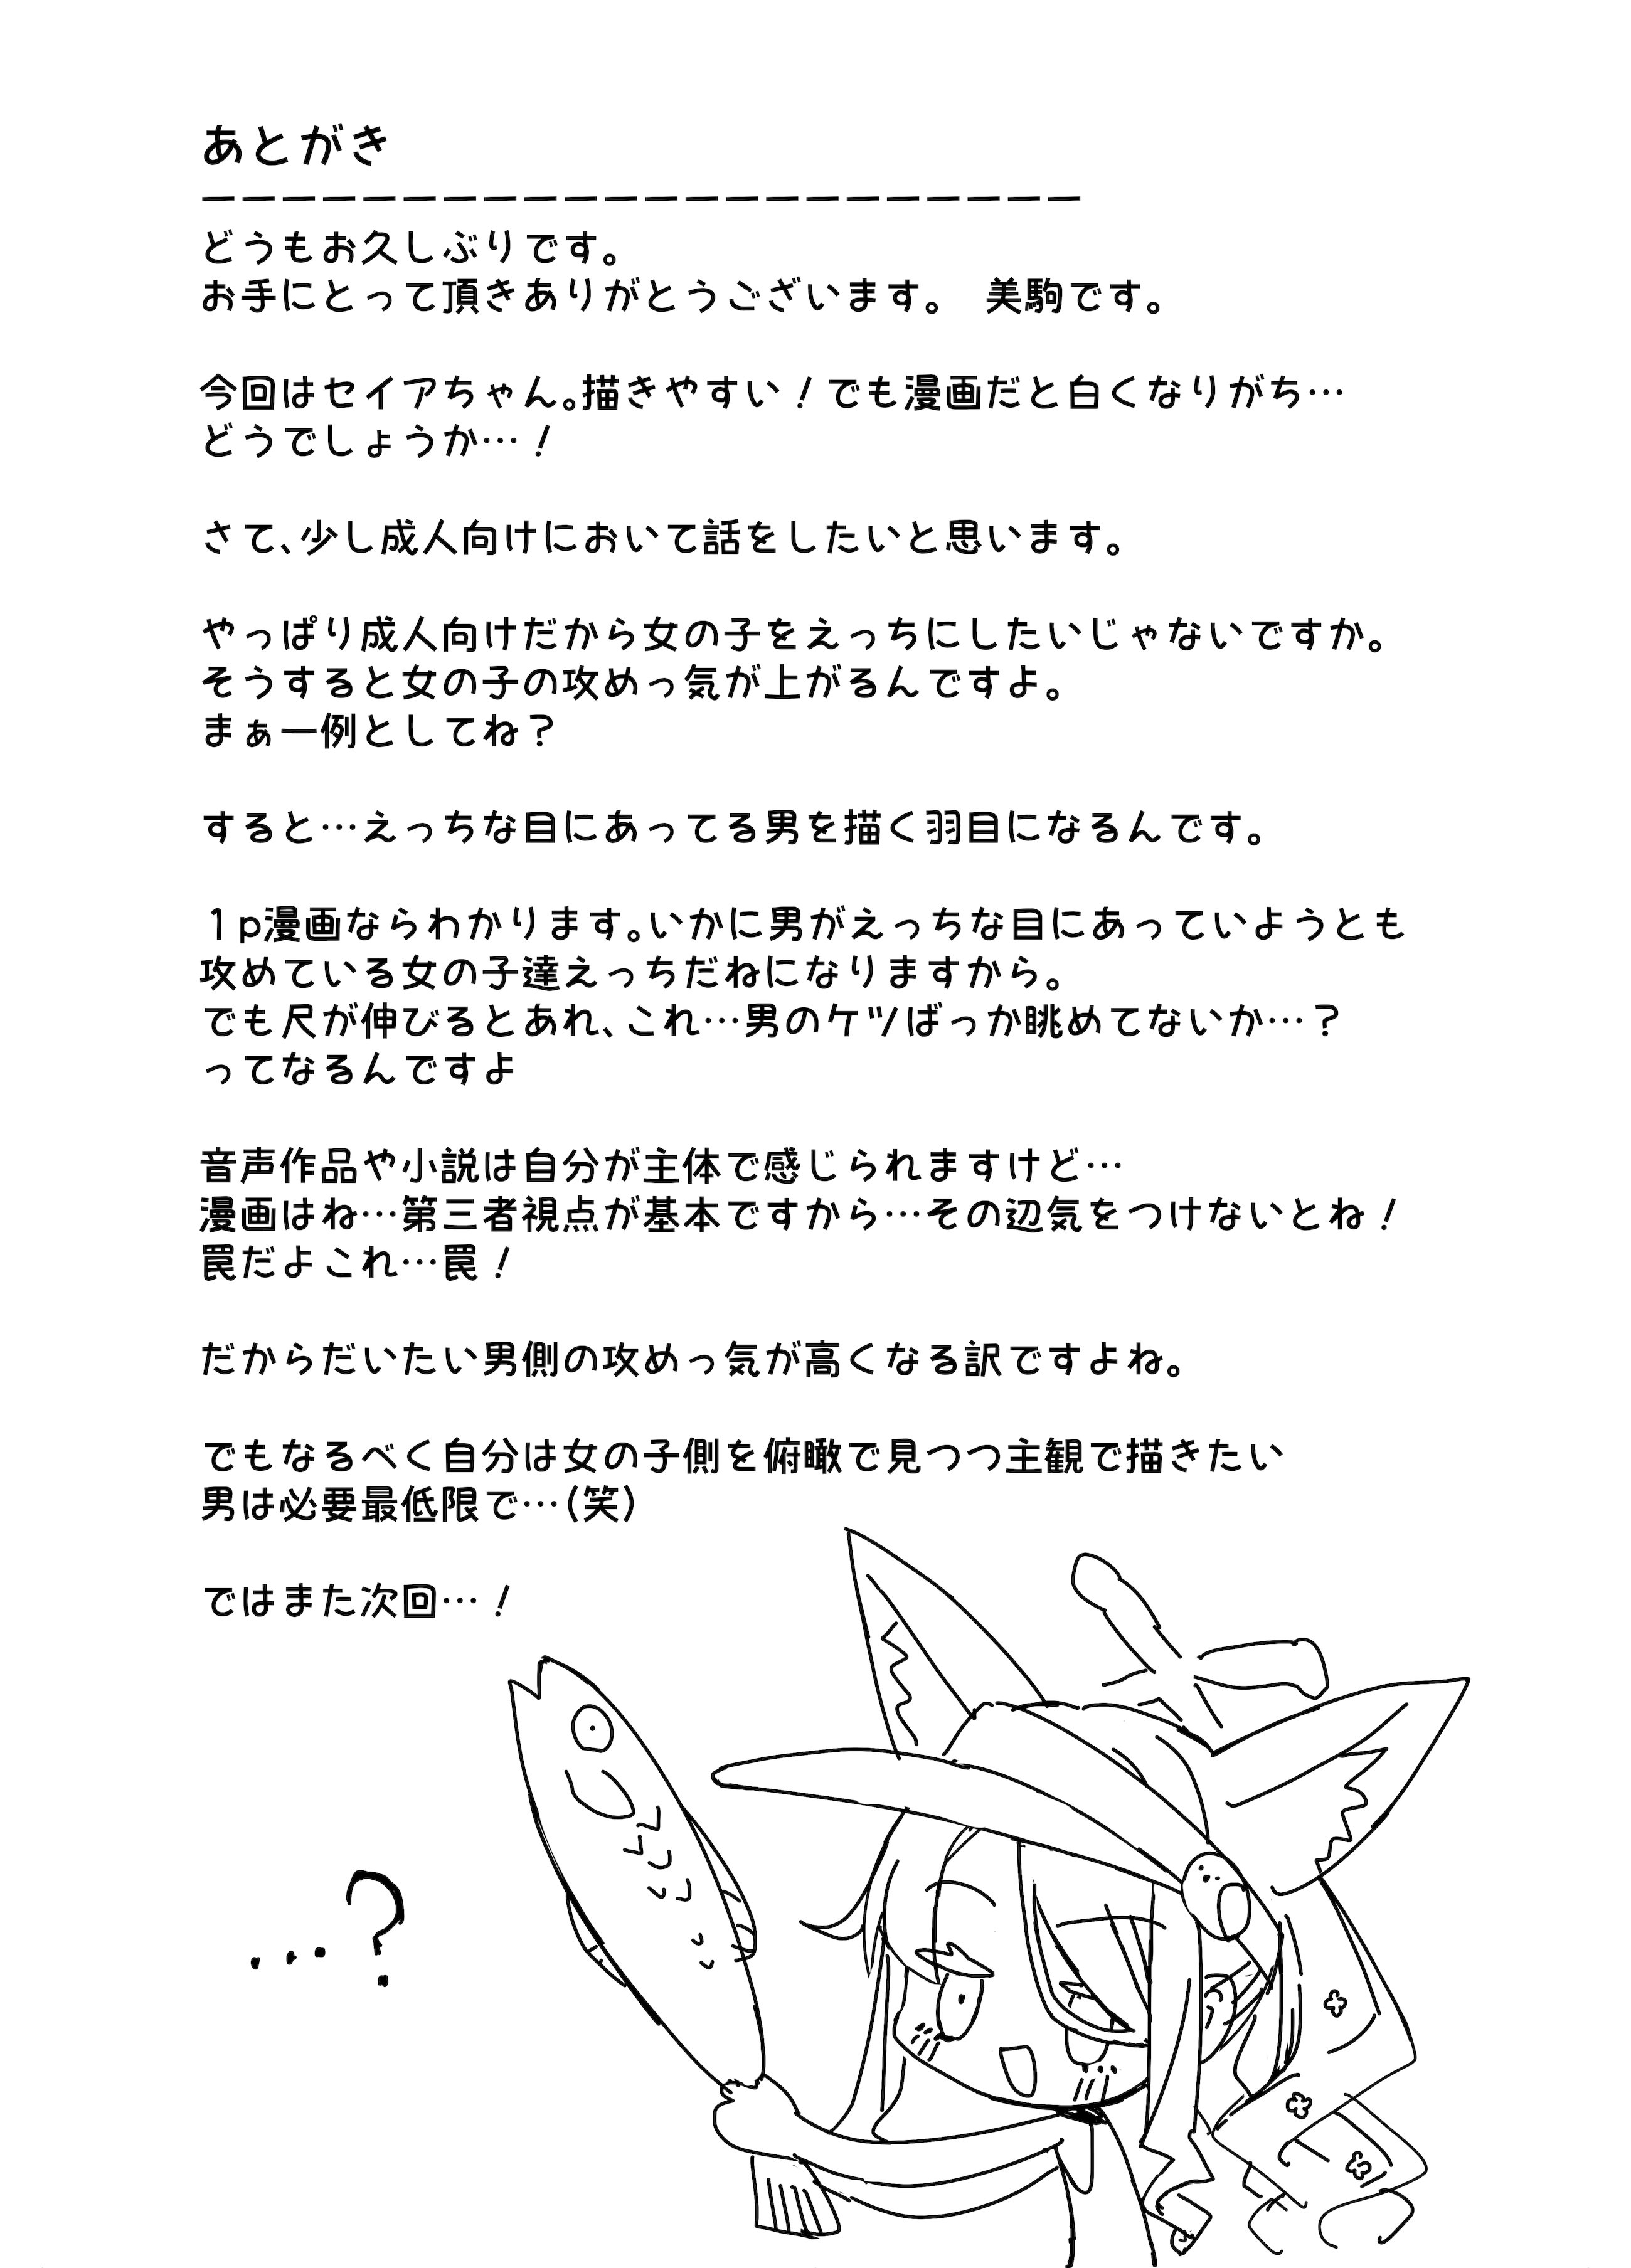 あとがき
ーーーーーーーーーーーーーーーーーーーーーー
どうもお久しぶりです。
お手にとって頂きありがとうございます。　美駒です。
今回はセイアちゃん。描きやすい！でも漫画だと白くなりがち…
どうでしょうか…！
さて、少し成人向けにおいて話をしたいと思います。
やっぱり成人向けだから女の子をえっちにしたいじゃないですか。
そうすると女の子の攻めっ気が上がるんですよ。
まぁ一例としてね？
すると…えっちな目にあってる男を描く羽目になるんです。
１p漫画ならわかります。いかに男がえっちな目にあっていようとも
攻めている女の子達えっちだねになりますから。
でも尺が伸びるとあれ、これ…男のケツばっか眺めてないか…？
ってなるんですよ
音声作品や小説は自分が主体で感じられますけど…
漫画はね…第三者視点が基本ですから…その辺気をつけないとね！
罠だよこれ…罠！
だからだいたい男側の攻めっ気が高くなる訳ですよね。
でもなるべく自分は女の子側を俯瞰で見つつ主観で描きたい
男は必要最低限で…(笑)
ではまた次回…！
…？